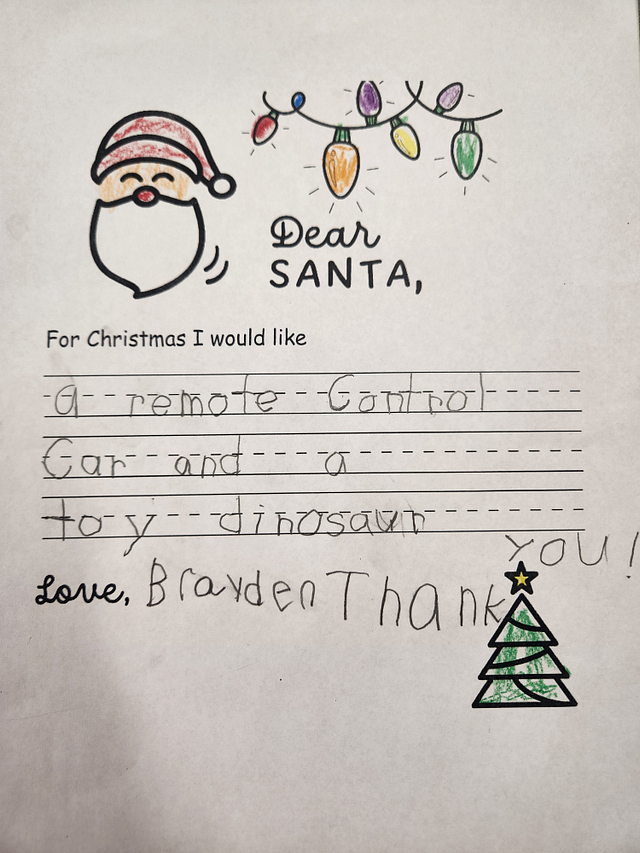 Dear
SANTA,
For Christmas I would like
a remote Control
Car and a
toy dinosaur
Love, Brayden Thank
YOU!